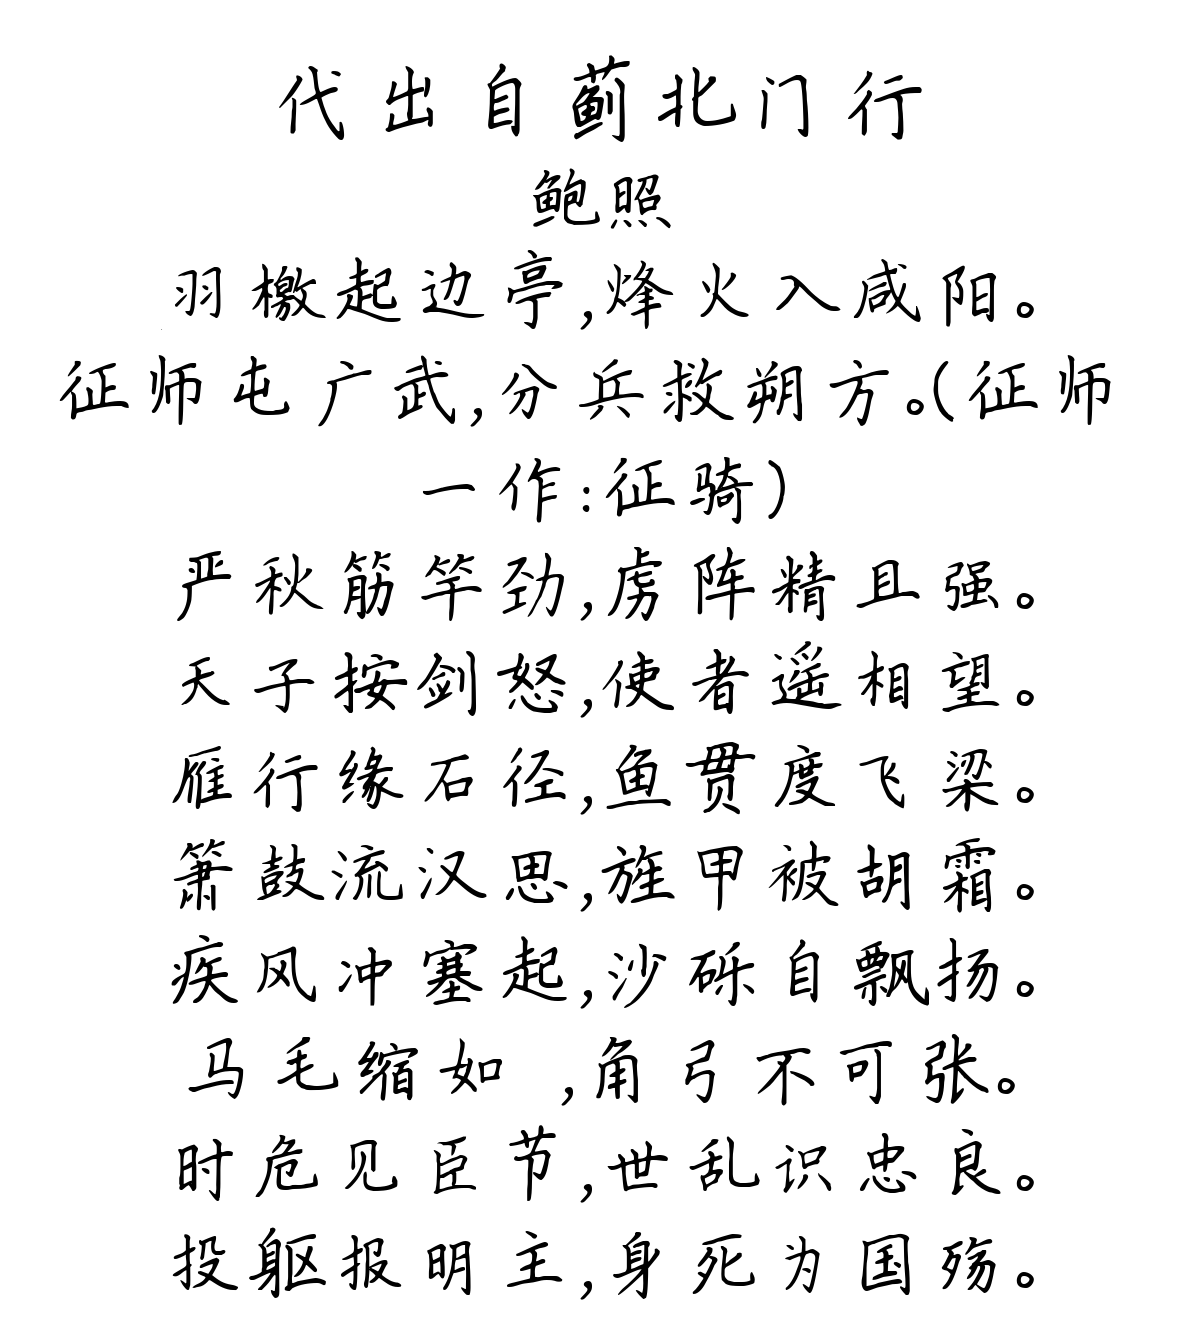 代出自蓟北门行
鲍照
羽檄起边亭,烽火入咸阳。
征师屯广武,分兵救朔方。(征师
一作:征骑)
严秋筋竿劲,虏阵精且强。
天子按剑怒,使者遥相望。
雁行缘石径,鱼贯度飞梁。
箫鼓流汉思,旌甲被胡霜。
疾风冲塞起,沙砾自飘扬。
马毛缩如 ,角弓不可张。
时危见臣节,世乱识忠良。
投躯报明主,身死为国殇。